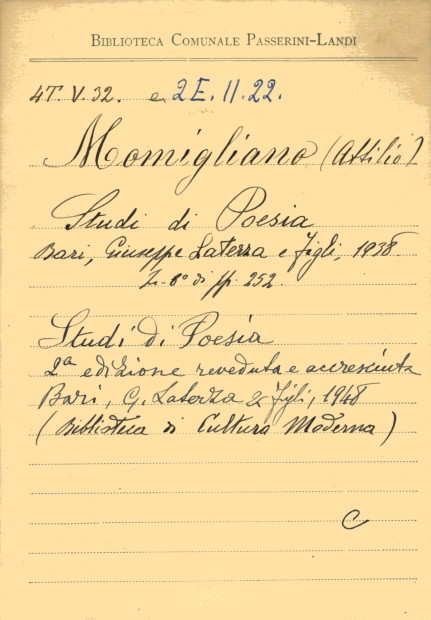 BIBLIOTECA COMUNALE PASSERINI-LANDI
4T. V. 32. e 2E. II. 22.
Momigliano (Attilio)
Studi di Poesia
Bari, Giuseppe Laterza e figli, 1938
In-8° di pp. 252.
Studi di Poesia
2ª edizione reveduta e accresciuta
Bari, G. Laterza & figli, 1948
(Biblioteca di Cultura Moderna)
C